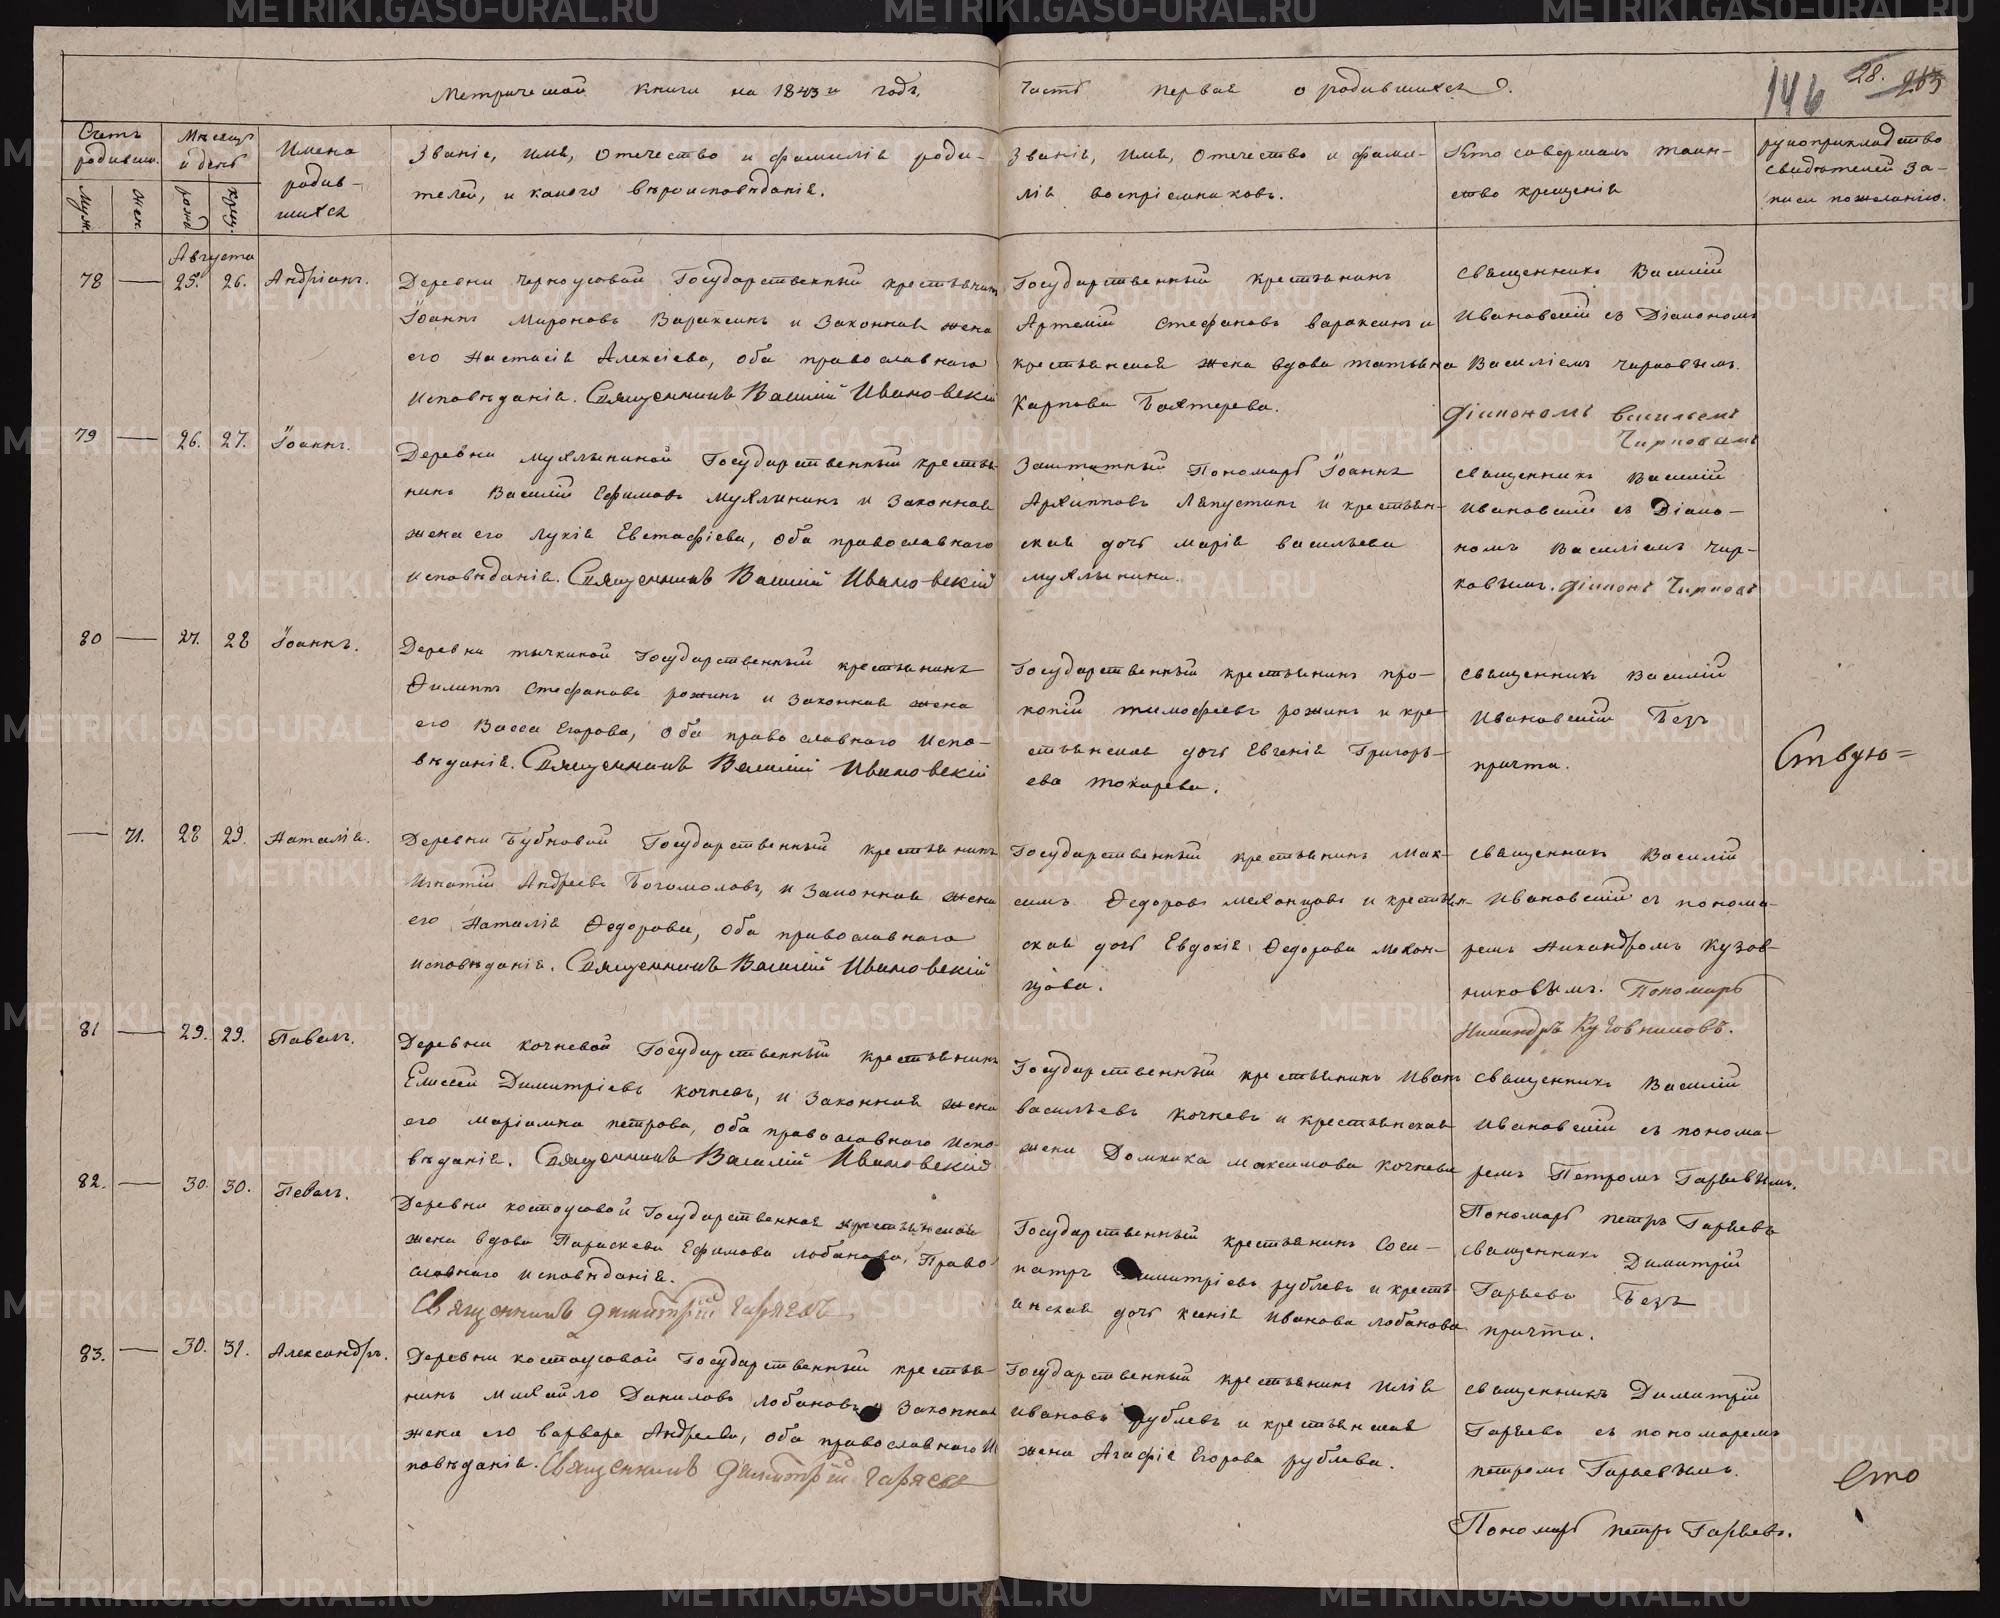 Метрической книги на 1843й годъ,
Часть первая о родившихся.
146 28.
Счетъ родивш.
Муж. Жен.
Мѣсяцъ и день
рожд. крещ.
Имена родив-
шихся
Званіе, имя, отечество и фамилія роди-
телей, и какого вѣроисповѣданія.
Званіе, имя, отечество и фами-
лія воспріемниковъ.
Кто совершалъ таин-
ство крещенія
рукоприкладство
свидѣтелей за-
писи по желанію.
Августа
78 — 25. 26. Андріанъ.
Деревни Черноусовой Государственный крестьянинъ
Іоаннъ Мироновъ Вараксинъ и законная жена
его Настасія Алексіева, оба православнаго
исповѣданія. Священникъ Василій Ивановскій
Государственный крестьянинъ
Артемій Стефановъ Вараксинъ и
крестьянская жена вдова Татьяна
Карпова Бахтерева.
священникъ Василій
Ивановскій съ Діакономъ
Василіемъ Чирковымъ.
Діакономъ Васильемъ
Чирковамъ
79 — 26. 27. Іоаннъ.
Деревни Мухлыниной Государственный крестья-
нинъ Василій Ефимовъ Мухлынинъ и законная
жена его Лукія Евстафіева, оба православнаго
исповѣданія. Священникъ Василій Ивановскій
Заштатный Пономарь Іоаннъ
Архипповъ Ляпустинъ и крестьян-
ская дочь Марія Васильева
Мухлынина.
священникъ Василій
Ивановскій съ Діако-
номъ Василіемъ Чир-
ковымъ. Діаконъ Чирковъ
80 — 27. 28 Іоаннъ.
Деревни Тычкиной Государственный крестьянинъ
Филиппъ Стефановъ Рожинъ и законная жена
его Васса Егорова, оба православнаго испо-
вѣданія. Священникъ Василій Ивановскій
Государственный крестьянинъ Про-
копій Тимофеевъ Рожинъ и кре-
стьянская дочь Евгенія Григорь-
ева Токарева.
священникъ Василій
Ивановскій Безъ
причта.
Ствую=
— 71. 28 29. Наталія.
Деревни Бубновой Государственный крестьянинъ
Игнатій Андреевъ Богомоловъ, и законная жена
его Наталія Федорова, оба православнаго
исповѣданія. Священникъ Василій Ивановскій
Государственный крестьянинъ Мак-
симъ Федоровъ Мехонцовъ и крестьян-
ская дочь Евдокія Федорова Мехон-
цова.
священникъ Василій
Ивановскій съ понома-
ремъ Никандромъ Кузов-
никовымъ. Пономарь
Никандръ Кузовниковъ.
81 — 29. 29. Павелъ.
Деревни Кочневой Государственный крестьянинъ
Елисей Димитріевъ Кочневъ, и законная жена
его Маріамна Петрова, оба православнаго испо-
вѣданія. Священникъ Василій Ивановскій
Государственный крестьянинъ Иванъ
Васильевъ Кочневъ и крестьянская
жена Домника Максимова Кочнева
священникъ Василій
Ивановскій съ понома-
ремъ Петромъ Гаряевымъ.
Пономарь Петръ Гаряевъ
82. — 30. 30. Павелъ.
Деревни Костоусовой Государственная крестьянская
жена вдова Параскева Ефимова Лобанова, Право-
славнаго исповѣданія.
Священникъ Димитрій Гаряевъ
Государственный крестьянинъ Соси-
патръ Димитріевъ Рублевъ и кресть-
янская дочь Ксенія Иванова Лобанова
священникъ Димитрій
Гаряевъ Безъ
причта.
83. — 30. 31. Александръ.
Деревни Костоусовой Государственный крестья-
нинъ Михайло Даниловъ Лобановъ и законная
жена его Варвара Андреева, оба православнаго ис
повѣданія. Священникъ Димитрій Гаряевъ
Государственный крестьянинъ Илія
Ивановъ Рублевъ и крестьянская
жена Агафія Егорова Рублева.
священникъ Димитрій
Гаряевъ съ пономаремъ
Петромъ Гаряевымъ.
Пономарь Петръ Гаряевъ.
сто
METRIKI.GASO-URAL.RU